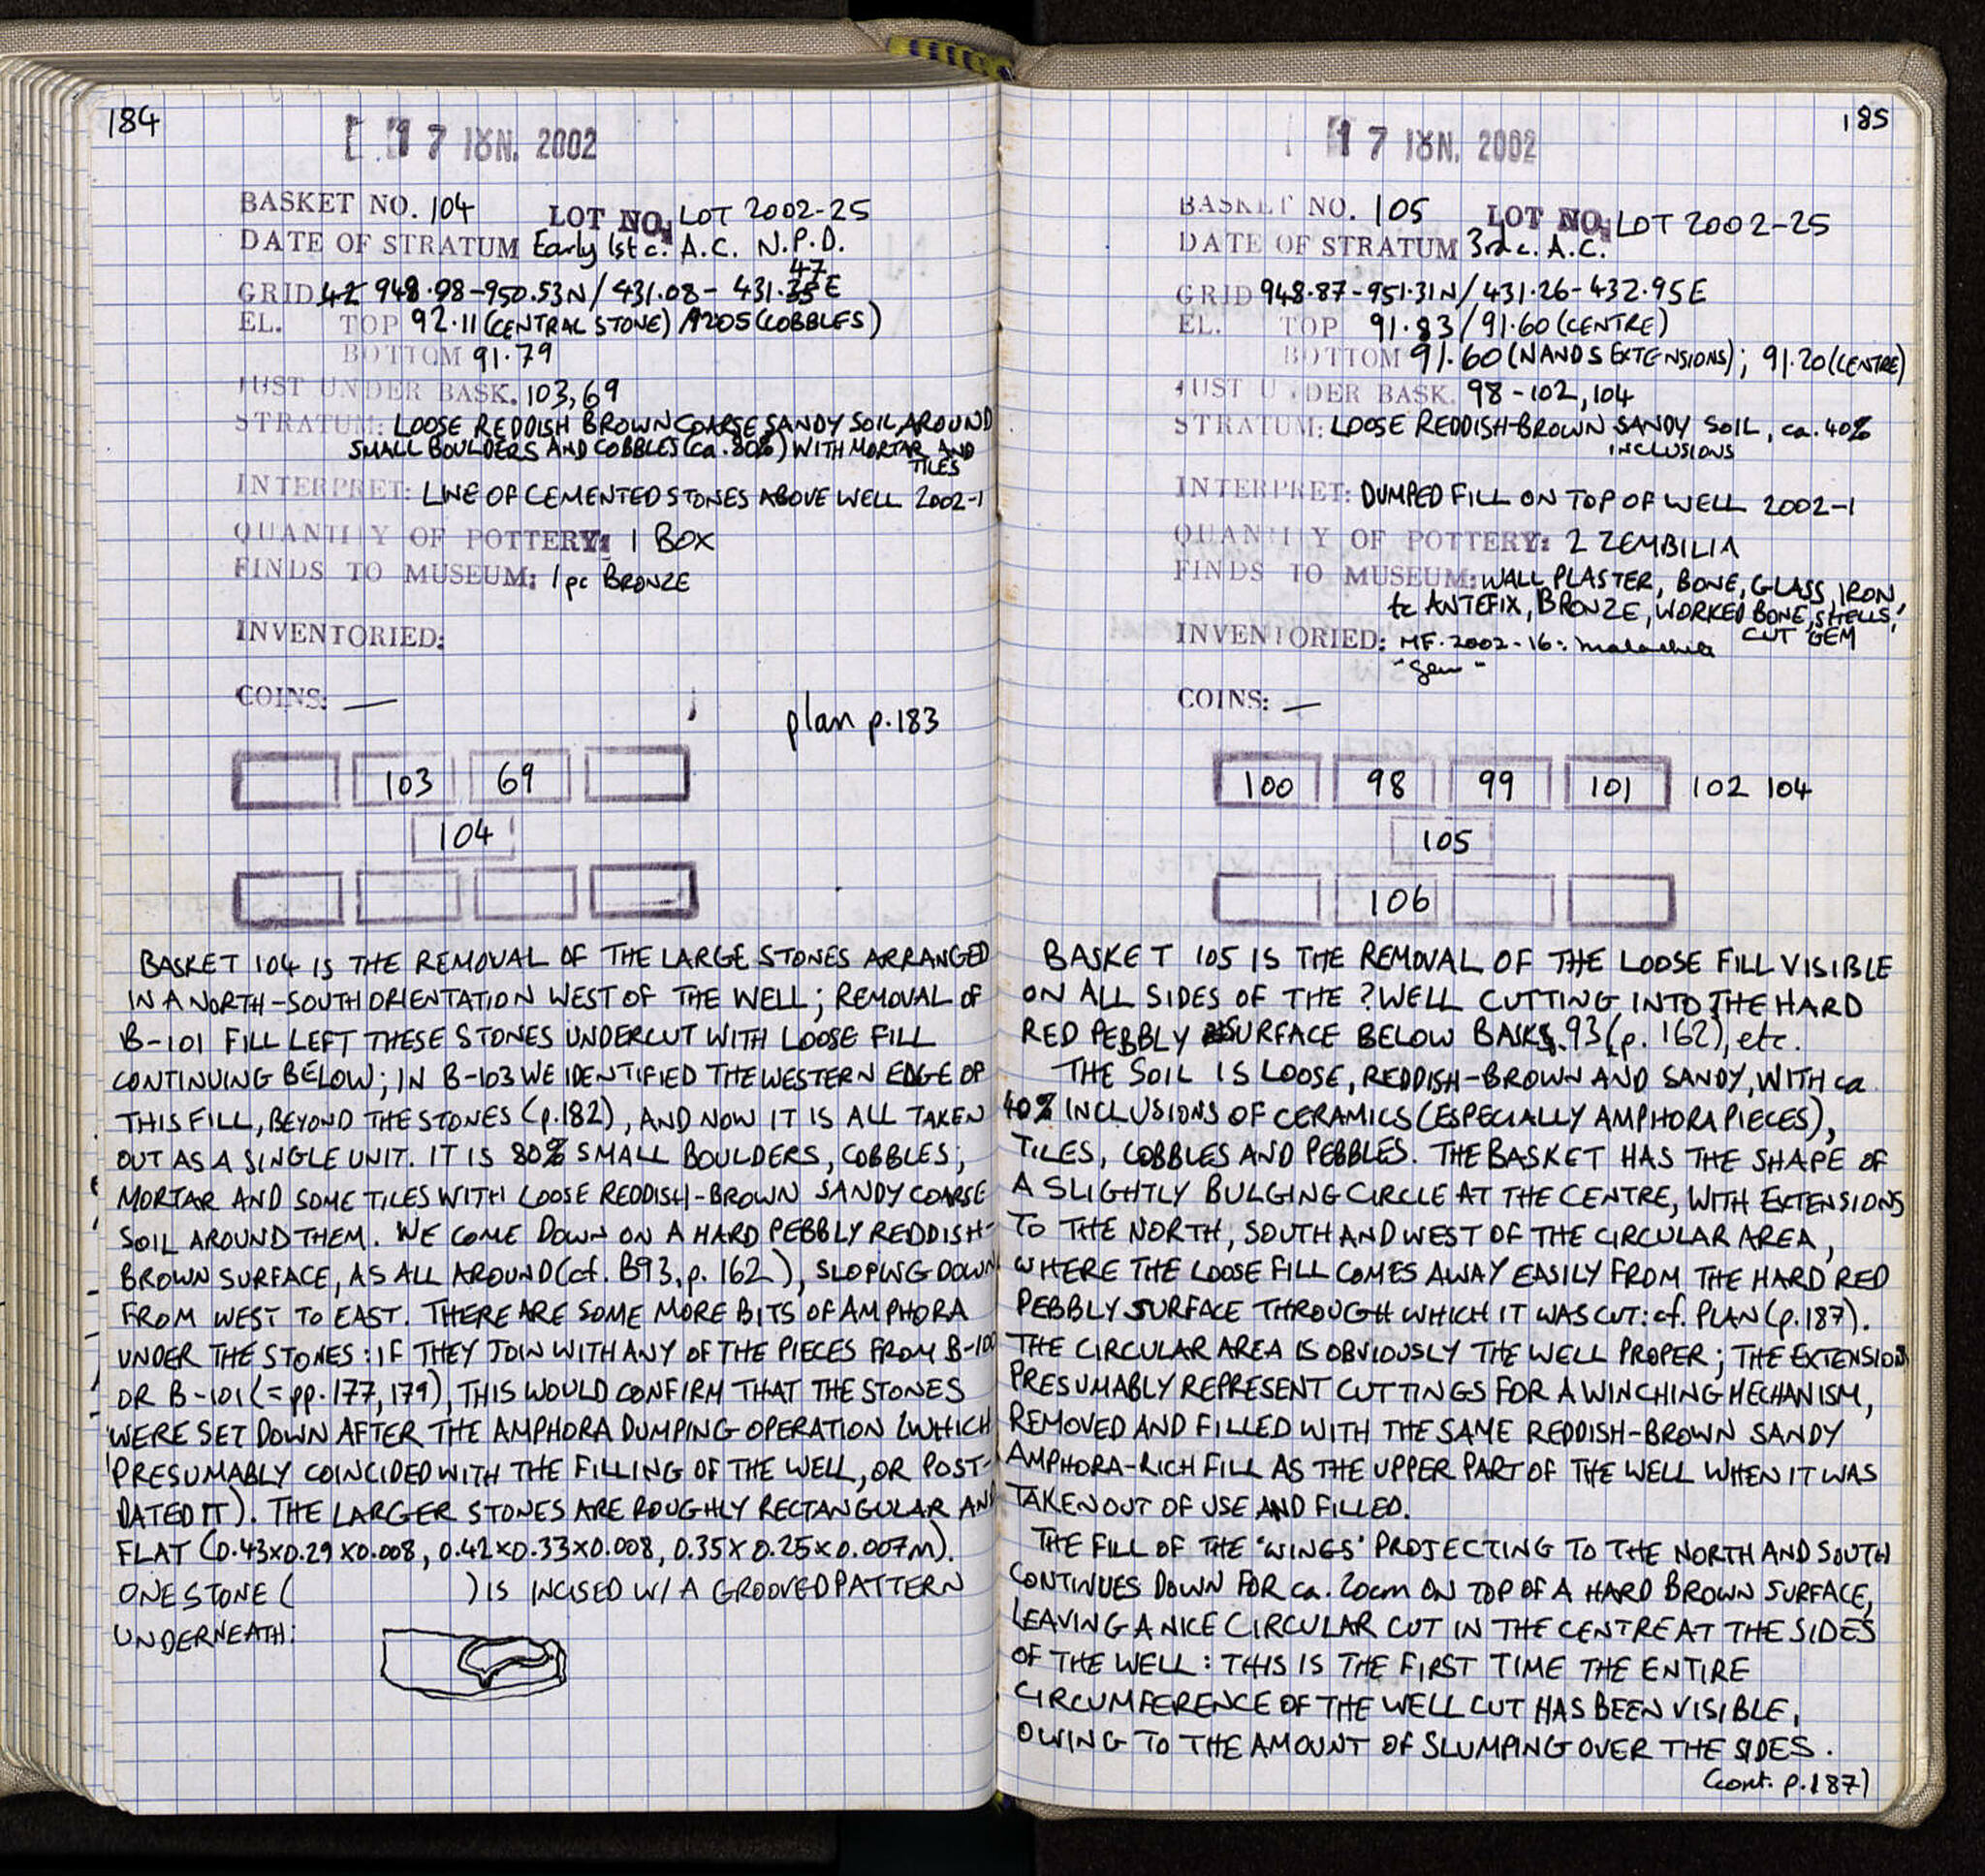 184
17 JUN. 2002
BASKET NO. 104 LOT NO: LOT 2002-25
DATE OF STRATUM Early 1st c. A.C. N.P.D.
47
GRID 948.98-950.53N/431.08-431.35E
EL. TOP 92.11 (CENTRAL STONE) (COBBLES)
BOTTOM 91.79
JUST UNDER BASK. 103, 69
STRATUM: LOOSE REDDISH BROWN COARSE SANDY SOIL AROUND
SMALL BOULDERS AND COBBLES (ca. 80%) WITH MORTAR AND
TILES
INTERPRET: LINE OF CEMENTED STONES ABOVE WELL 2002-1
QUANTITY OF POTTERY: 1 BOX
FINDS TO MUSEUM: 1 pc BRONZE
INVENTORIED:
COINS: —
plan p.183
103 69
104
BASKET 104 IS THE REMOVAL OF THE LARGE STONES ARRANGED
IN A NORTH-SOUTH ORIENTATION WEST OF THE WELL; REMOVAL OF
B-101 FILL LEFT THESE STONES UNDERCUT WITH LOOSE FILL
CONTINUING BELOW; IN B-103 WE IDENTIFIED THE WESTERN EDGE OF
THIS FILL, BEYOND THE STONES (p.182), AND NOW IT IS ALL TAKEN
OUT AS A SINGLE UNIT. IT IS 80% SMALL BOULDERS, COBBLES,
MORTAR AND SOME TILES WITH LOOSE REDDISH-BROWN SANDY COARSE
SOIL AROUND THEM. WE COME DOWN ON A HARD PEBBLY REDDISH-
BROWN SURFACE, AS ALL AROUND (cf. B93, p. 162), SLOPING DOWN
FROM WEST TO EAST. THERE ARE SOME MORE BITS OF AMPHORA
UNDER THE STONES: IF THEY JOIN WITH ANY OF THE PIECES FROM B-100
OR B-101 (= pp. 177, 179), THIS WOULD CONFIRM THAT THE STONES
WERE SET DOWN AFTER THE AMPHORA DUMPING OPERATION (WHICH
PRESUMABLY COINCIDED WITH THE FILLING OF THE WELL, OR POST-
DATED IT). THE LARGER STONES ARE ROUGHLY RECTANGULAR AND
FLAT (0.43x0.29x0.008, 0.42x0.33x0.008, 0.35x0.25x0.007m).
ONE STONE ( ) IS INCISED W/ A GROOVED PATTERN
UNDERNEATH:
185
17 JUN. 2002
BASKET NO. 105 LOT NO: LOT 2002-25
DATE OF STRATUM 3rd c. A.C.
GRID 948.87-951.31N/431.26-432.95E
EL. TOP 91.83/91.60 (CENTRE)
BOTTOM 91.60 (N AND S EXTENSIONS); 91.20 (CENTRE)
JUST UNDER BASK. 98-102, 104
STRATUM: LOOSE REDDISH-BROWN SANDY SOIL, ca. 40%
INCLUSIONS
INTERPRET: DUMPED FILL ON TOP OF WELL 2002-1
QUANTITY OF POTTERY: 2 ZEMBILIA
FINDS TO MUSEUM: WALL PLASTER, BONE, GLASS, IRON,
tc ANTEFIX, BRONZE, WORKED BONE, SHELLS,
CUT GEM
INVENTORIED: MF.2002-16: malachite
"gem"
COINS: —
100 98 99 101 102 104
105
106
BASKET 105 IS THE REMOVAL OF THE LOOSE FILL VISIBLE
ON ALL SIDES OF THE ?WELL CUTTING INTO THE HARD
RED PEBBLY SURFACE BELOW BASKS. 93 (p. 162), etc.
THE SOIL IS LOOSE, REDDISH-BROWN AND SANDY, WITH ca
40% INCLUSIONS OF CERAMICS (ESPECIALLY AMPHORA PIECES),
TILES, COBBLES AND PEBBLES. THE BASKET HAS THE SHAPE OF
A SLIGHTLY BULGING CIRCLE AT THE CENTRE, WITH EXTENSIONS
TO THE NORTH, SOUTH AND WEST OF THE CIRCULAR AREA,
WHERE THE LOOSE FILL COMES AWAY EASILY FROM THE HARD RED
PEBBLY SURFACE THROUGH WHICH IT WAS CUT: cf. PLAN (p.187).
THE CIRCULAR AREA IS OBVIOUSLY THE WELL PROPER; THE EXTENSIONS
PRESUMABLY REPRESENT CUTTINGS FOR A WINCHING MECHANISM,
REMOVED AND FILLED WITH THE SAME REDDISH-BROWN SANDY
AMPHORA-RICH FILL AS THE UPPER PART OF THE WELL WHEN IT WAS
TAKEN OUT OF USE AND FILLED.
THE FILL OF THE 'WINGS' PROJECTING TO THE NORTH AND SOUTH
CONTINUES DOWN FOR ca. 20cm ON TOP OF A HARD BROWN SURFACE,
LEAVING A NICE CIRCULAR CUT IN THE CENTRE AT THE SIDES
OF THE WELL: THIS IS THE FIRST TIME THE ENTIRE
CIRCUMFERENCE OF THE WELL CUT HAS BEEN VISIBLE,
OWING TO THE AMOUNT OF SLUMPING OVER THE SIDES.
(cont. p.187)